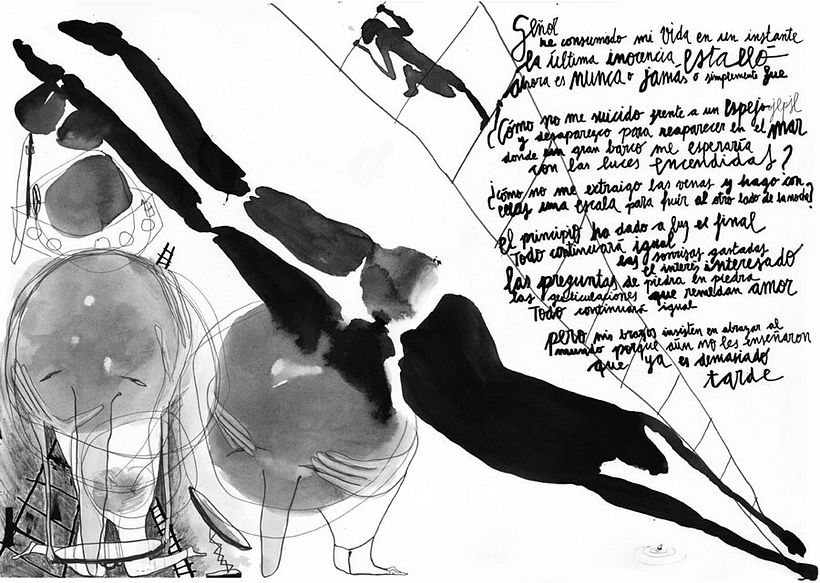 Señor
he consumado mi vida en un instante
la última inocencia estalló
Ahora es nunca o jamás o simplemente fue
¿Cómo no me suicido frente a un espejo
y desaparezco para reaparecer en el mar
donde un gran barco me esperaría
con las luces encendidas?
¿cómo no me extraigo las venas y hago con
ellas una escala para huir al otro lado de la noche?
el principio ha dado a luz el final
Todo continuará igual
las sonrisas gastadas
el interés interesado
las preguntas de piedra en piedra
las gesticulaciones que remedan amor
Todo continuará igual
pero mis brazos insisten en abrazar al
mundo porque aún no les enseñaron
que ya es demasiado
tarde